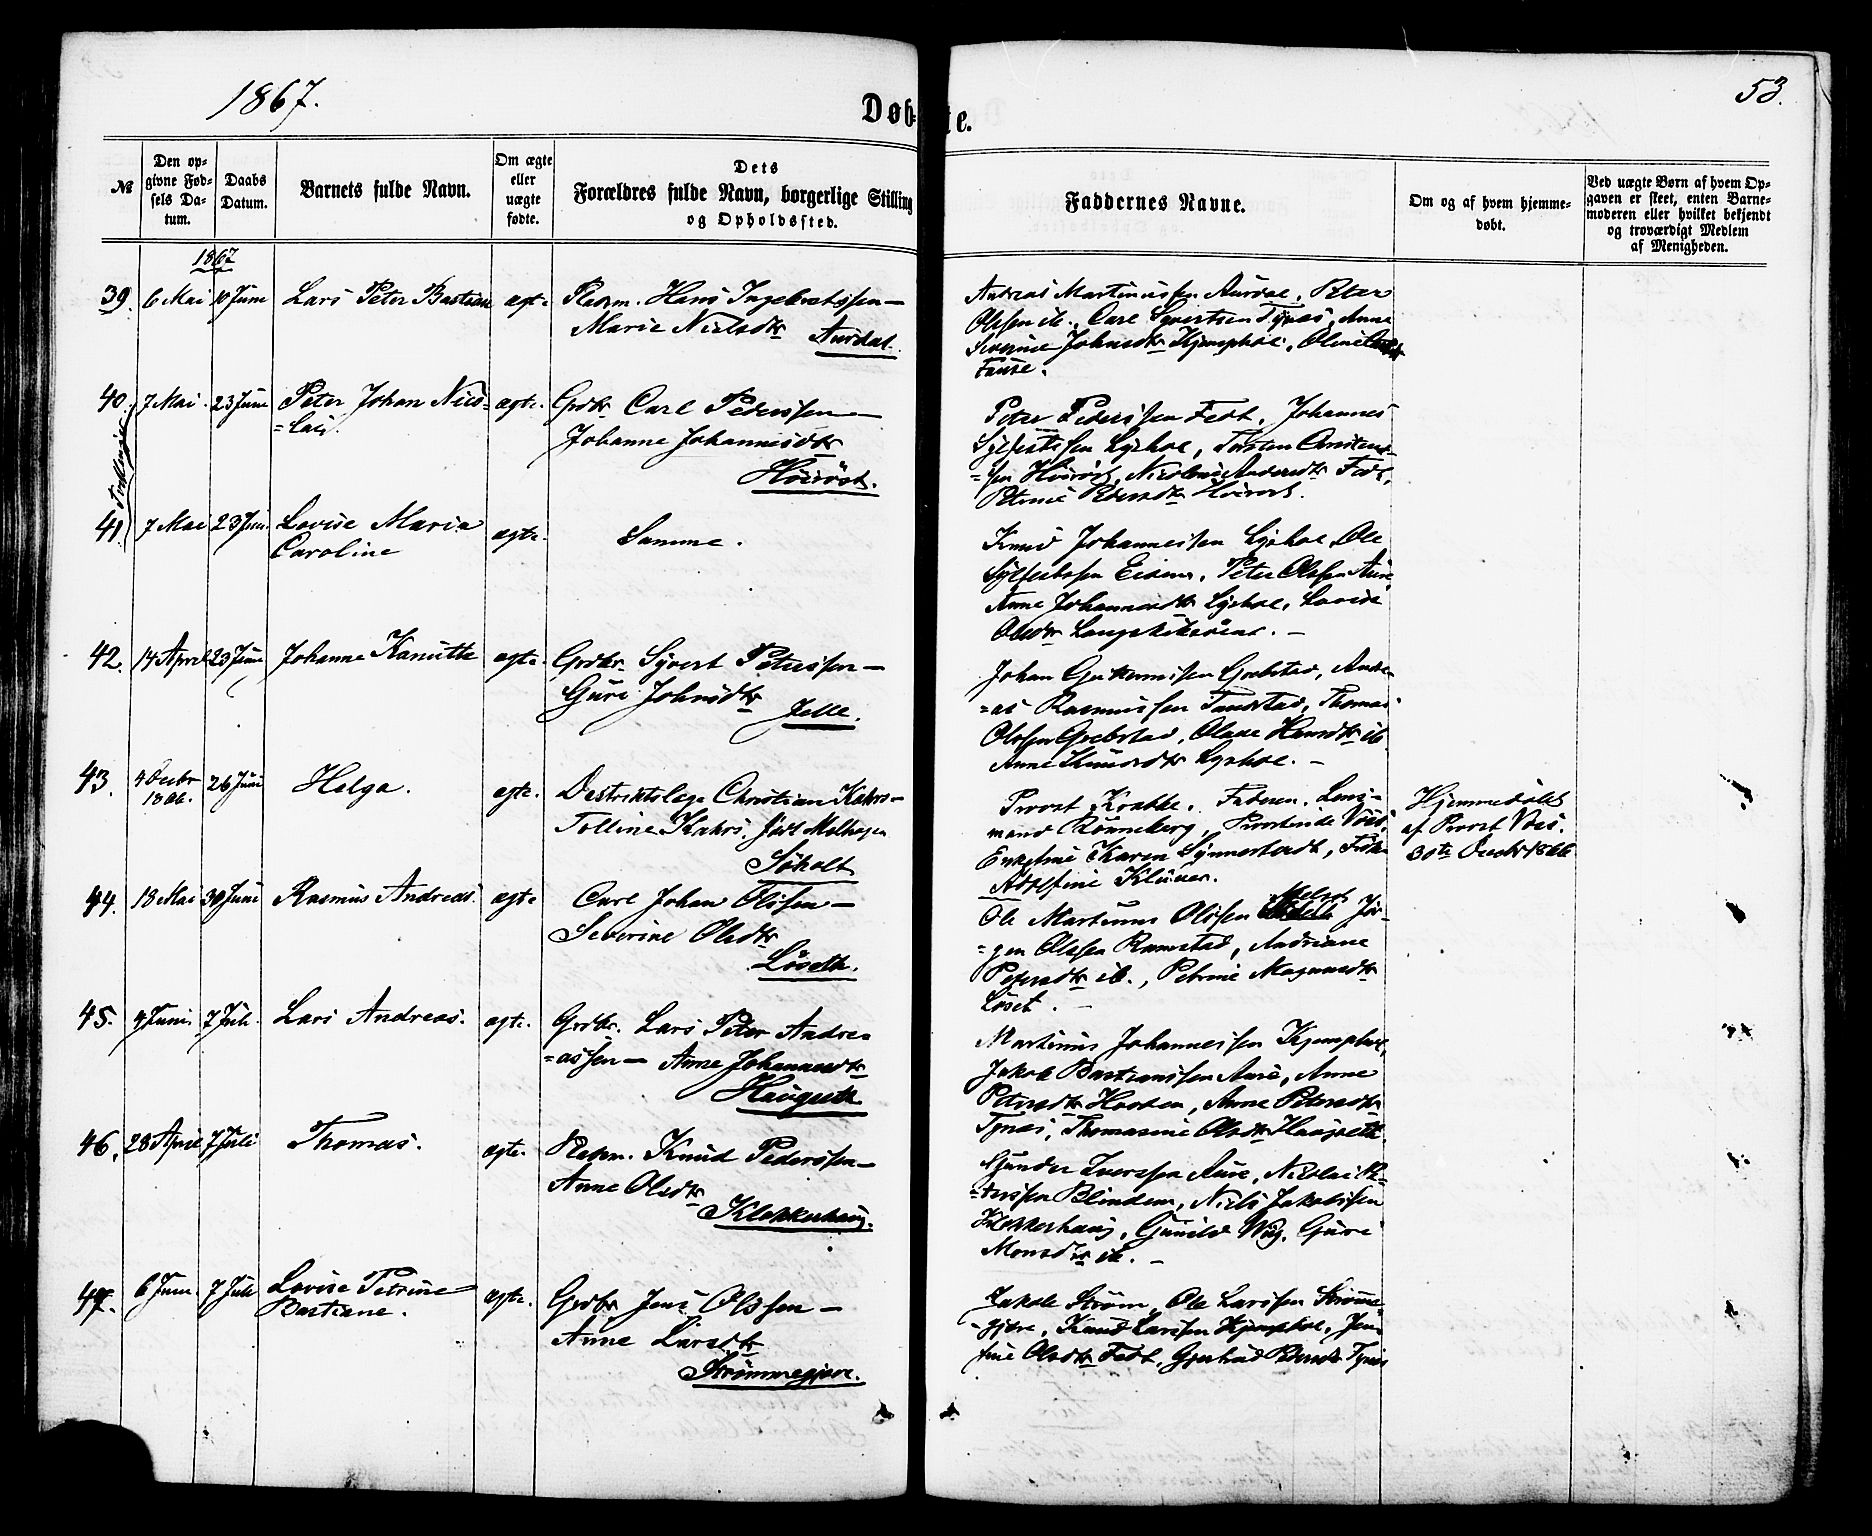 1867.
Døb-
te.
53.
№
Den op-
givne Fød-
sels Da-
tum.
Daabs
Datum.
Barnets fulde Navn.
Om ægte
eller
uægte
fødte.
Dets
Forældres fulde Navn, borgerlige Stilling
og Opholdssted.
Faddernes Navne.
Om og af hvem hjemme-
døbt.
Ved uægte Børn af hvem Op-
gaven er skeet, enten Barne-
moderen eller hvilket bekjendt
og troværdigt Medlem
af Menigheden.
1867
39. 6 Mai 10 Juni Lars Peter Bastian ægte Hans Ingebretssen –
Marie Nielsdtr Aurdal.
Andreas Martinussen Aurdal, Peter
Olssen ib., Carl Syvertsen Tynæs, Anne
Severine Johnsdtr Kjemphol, Oline
40. 7 Mai 23 Juni Peter Johan Nico-
=lai. ægte. Grdbr Carl Pederssen –
Johanne Johannesdtr
Tvillinger
Peter Pederssen Fedt, Johannes
Sylfestssen Lyshol, Torsten
=sen Nicoline Andersdtr Fedt,
Petrine Pedersdtr
41. 7 Mai 23 Juni Lovise Maria
Caroline ægte. Samme.
Knud Johannessen Lyshol, Ole
Sylfestssen Peter Olssen Aure
Anne Johannesdtr Lyshol, Lovise
Olsdtr
42. 14 April 23 Juni Johanne Kanutte ægte. Grdbr. Syvert Peterssen –
Guri Johnsdtr Jelle.
Johan Grebstad, Andre-
=as Rasmussen Tandstad, Thomas
Olssen Grebstad, Olave Hansdtr ib.
Anne Lyshol. –
43. 4 Decbr
1866. 26 Juni Helga. ægte. Destriktslæge Christian Kahrs –
Tolline Kahrs, født
Søholt
Provst Krabbe, Faderen, Lens-
mand Rönneberg, Provstinde Voss,
Karen Synnestvedt,
Adolfine Klüver.
Hjemmedöbt
af Provst Voss.
30te Decbr 1866
44. 18 Mai 30 Juni Rasmus Andreas. ægte Carl Johan Olssen –
Severine Olsdtr
Løseth.
Ole Martinus Olssen Jør-
=gen Olssen Ramstad, Andriane
Petersdtr ib., Petrine Magnusdtr
Løset. –
45. 9 Juni. 7 Juli. Lars Andreas. ægte. Grdbr. Lars Peter Andre-
=assen – Anne Johannesdtr
Haugseth
Martinus Johannessen Kjemphol,
Jakob Bastianssen Aure, Anne
Petersdtr Anne Petersdtr
Tynæs, Thomasine Olsdtr Haugseth
46. 28 April 7 Juli Thomas. ægte. Knud Pederssen –
Anne Olsdtr
Klokkerhaug.
Iverssen Aure, Nicolai Pe-
=derssen Blindem, Niels Jakobssen
Klokkerhaug, Gunild Guri
Monsdtr ib. –
47. 6 Juni 7 Juli Lovise Petrine
Bastiane. ægte. Grdbr Jens Olssen –
Anne Larsdtr
Strömmegjære.
Jakob Ström, Ole Larssen Strömme-
=gjære, Knud Larssen Kjemphol, Jen-
sine Olsdtr Fedt, Gjertrud Pedersdtr Tynæs